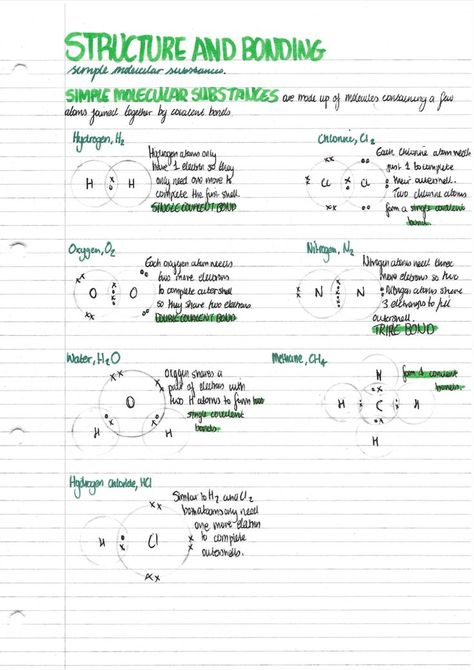 STRUCTURE AND BONDING
simple molecular substances.
SIMPLE MOLECULAR SUBSTANCES are made up of molecules containing a few
atoms joined together by covalent bonds
Hydrogen, H2
H H
Hydrogen atoms only
have 1 electron so they
only need one more to
complete the first shell
SINGLE COVALENT BOND
Chlorine, Cl2
Cl Cl
Each chlorine atom needs
just 1 to complete
their outershell.
Two chlorine atoms
form a single covalent
bond.
Oxygen, O2
O O
Each oxygen atom needs
two more electrons
to complete outer shell
so they share two electrons
DOUBLE COVALENT BOND
Nitrogen, N2
N N
Nitrogen atoms need three
more electrons so two
nitrogen atoms share
3 electrons to fill
outershell.
TRIPLE BOND
Water, H2O
O
H H
oxygen shares a
pair of electrons with
two H atoms to form two
single covalent
bonds.
Methane, CH4
H
H C H
H
form 4 covalent
bonds.
Hydrogen chloride, HCl
H Cl
Similar to H2 and Cl2
both atoms only need
one more electron
to complete
outershells.